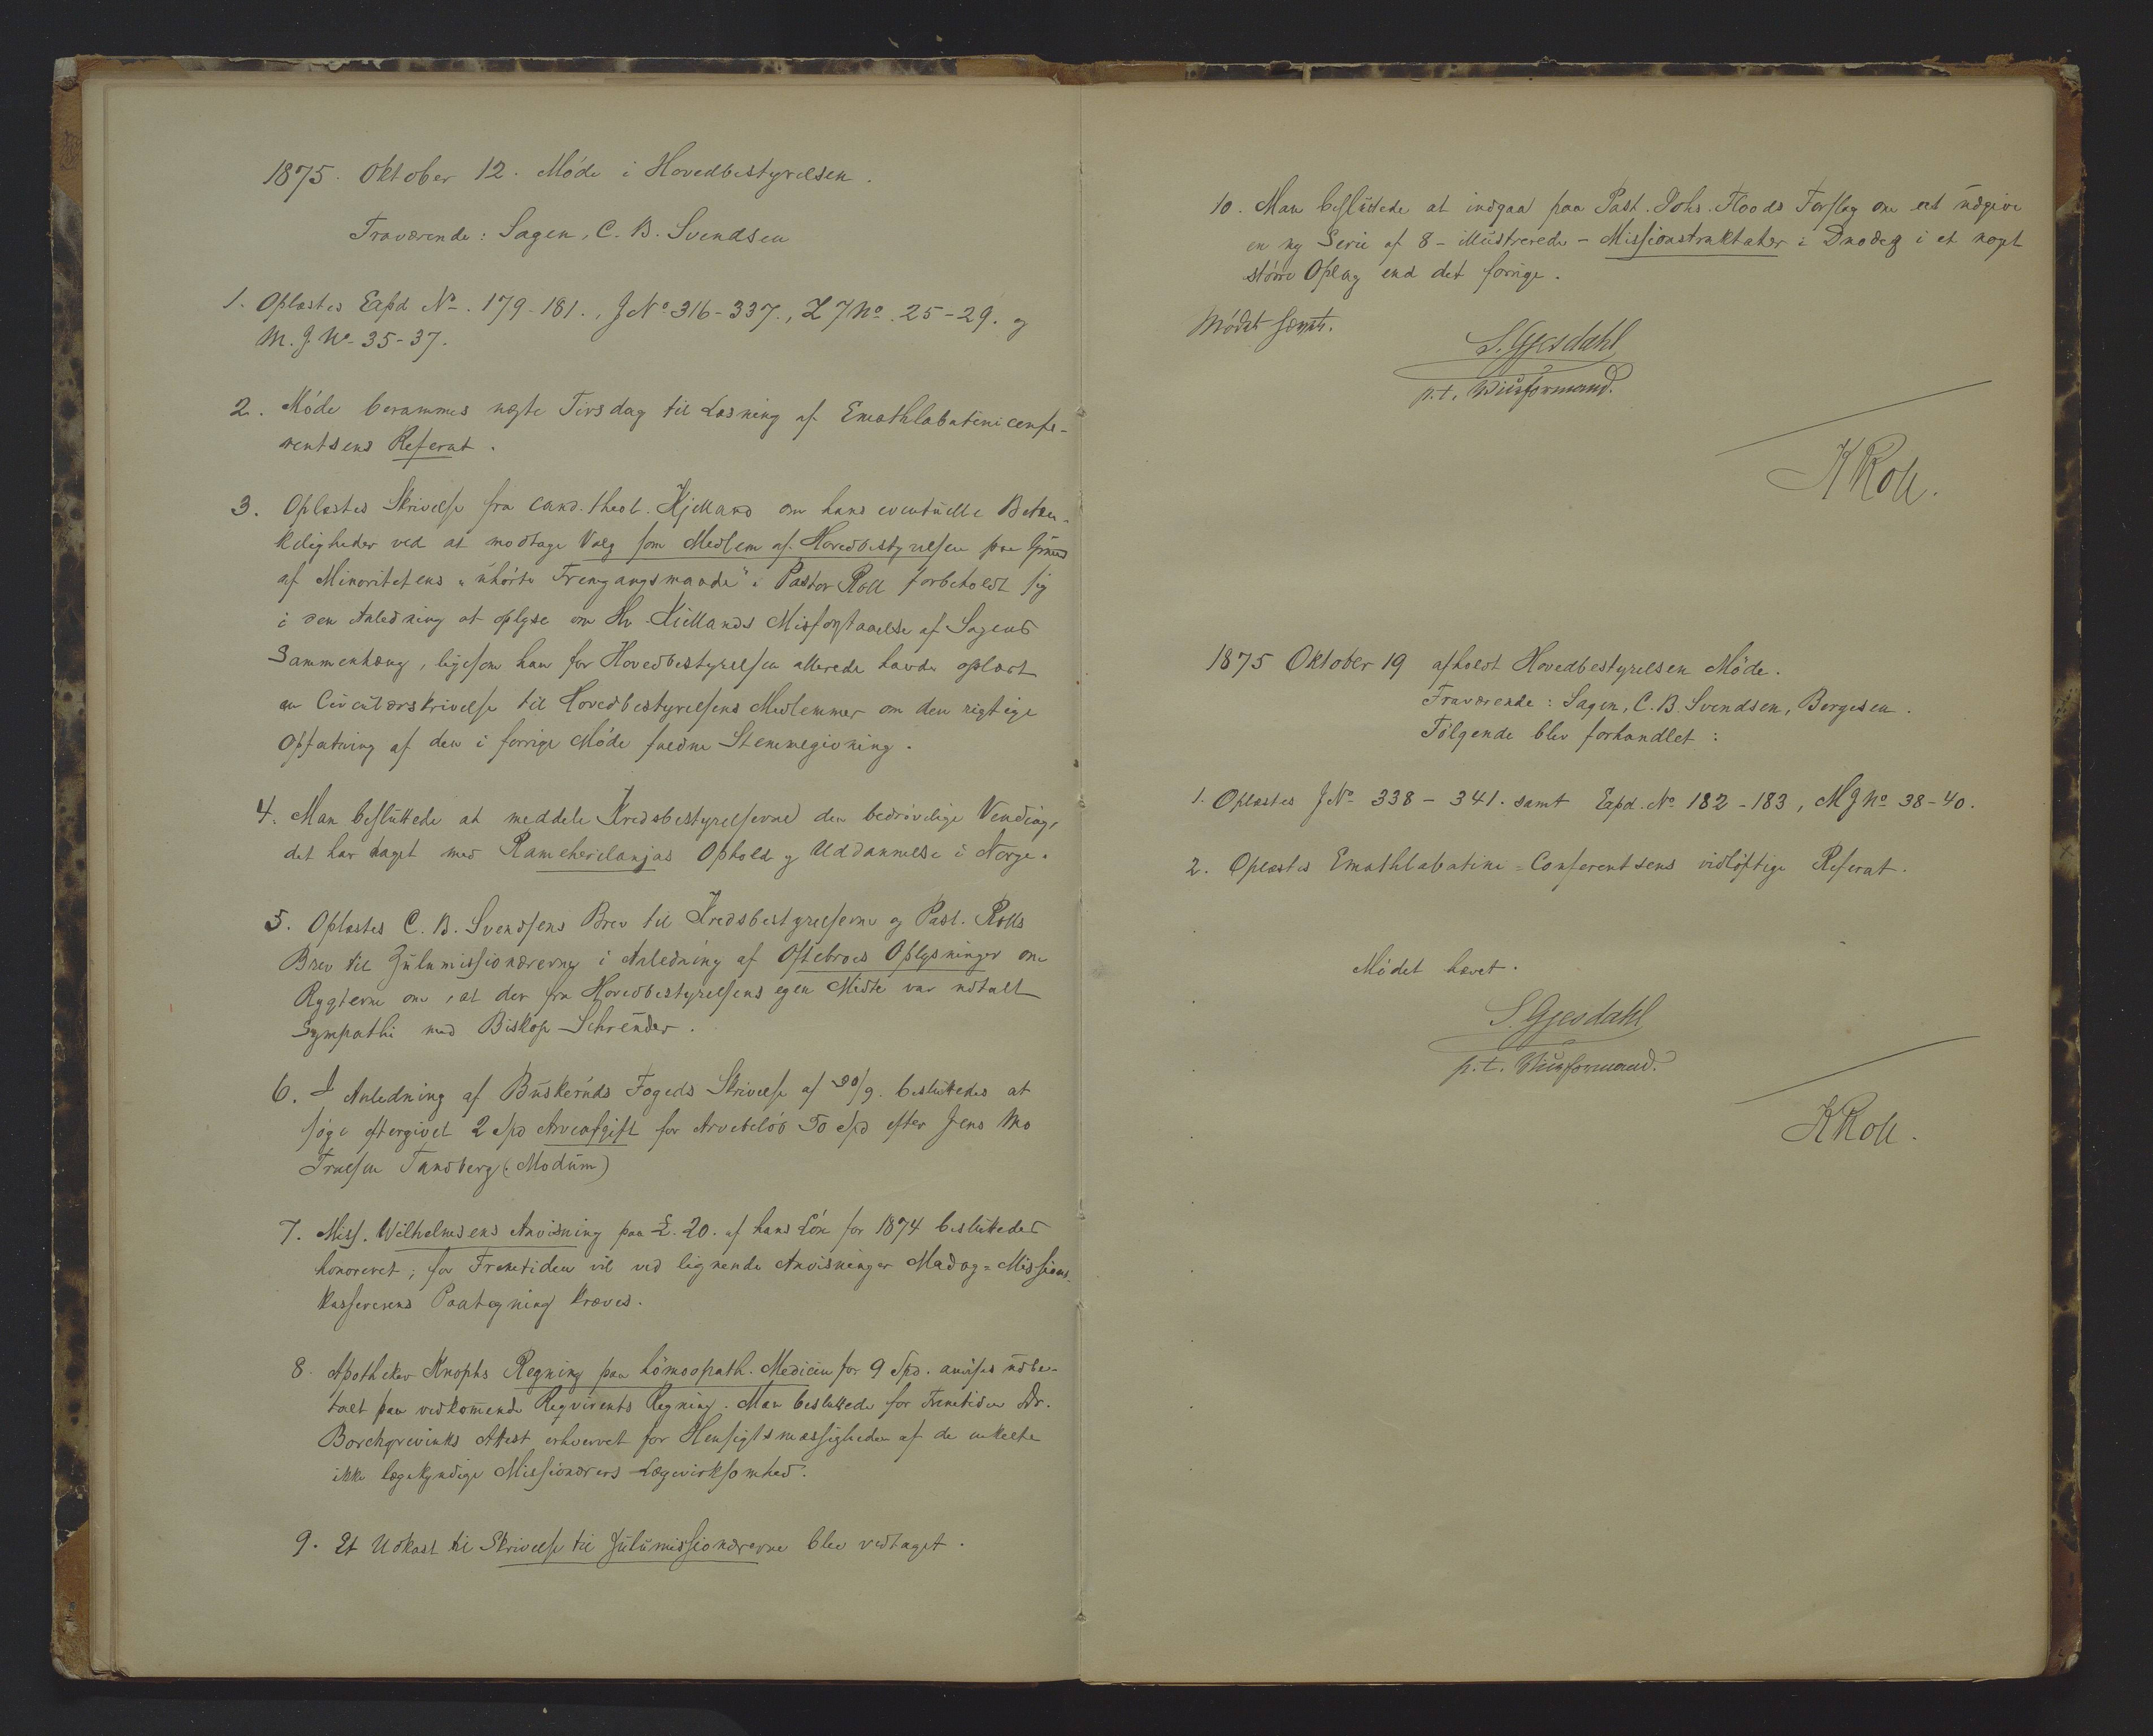 1875. Oktober 12. Møde i Hovedbestyrelsen.
Fraværende: Sagen, C. B. Svendsen
1. Oplæstes Expd No. 179-181., J No 316-337., Z J No. 25-29. og
M. J. No 35-37.
2. Møde berammes næste Tirsdag til Læsning af Emathlabatiniconfe-
rentsens Referat.
3. Oplæstes Skrivelse fra cand. theol. Kielland om hans eventuelle Betæn-
keligheder ved at modtage Valg som Medlem af Hovedbestyrelsen paa Grund
af Minoritetens "uhørte Fremgangsmaade"; Pastor Roll forbeholdt sig
i den Anledning at oplyse om Hr. Kiellands Misforstaaelse af Sagens
Sammenhæng, ligesom han for Hovedbestyrelsen allerede havde oplæst
en Circulærskrivelse til Hovedbestyrelsens Medlemmer om den rigtige
Opfatning af den i forrige Møde Stemmegivning.
4. Man besluttede at meddele Kredsbestyrelserne den bedrøvelige Vending,
det har taget med Ophold og Uddannelse i Norge.
5. Oplæstes C. B. Svendsens Brev til Kredsbestyrelserne og Past. Rolls
Brev til Zulumissionærerne i Anledning af Oftebroes Oplysninger om
Rygterne om, at der fra Hovedbestyrelsens egen Midte var udtalt
Sympathi med Biskop Schreuder.
6. I Anledning af Buskeruds Fogeds Skrivelse af 20/9. besluttedes at
søge eftergivet 2 Spd Arveafgift for Arvebeløb 50 Spd efter Jens Mo
Truelsen Tandberg (Modum)
7. Miss. Wilhelmsens Anvisning paa £. 20. af hans Løn for 1874 besluttedes
honoreret; for Fremtiden vil ved lignende Anvisninger Madag-Missions-
kassererens Paategning kræves.
8. Apotheker Knophs Regning paa homøopath. Medicin for 9 Spd. anvises udbe-
talt paa vedkommende Reqvirents Regning. Man besluttede for Fremtiden Dr.
Borchgrevinks Attest erhvervet for Hensigtsmæssigheden af de enkelte
ikke lægekyndige Missionærers Lægevirksomhed.
9. Et Udkast til Skrivelse til Zulumissionærerne blev vedtaget.
10. Man besluttede at indgaa paa Past. Johs. Floods Forslag om at udgive
en ny Serie af 8 - illustrerede - Missionstraktater i Duodez i et noget
større Oplag end det forrige.
Mødet hævet.
S. Gjesdahl
p.t. Viceformand.
K Roll.
1875 Oktober 19 afholdt Hovedbestyrelsen Møde.
Fraværende: Sagen, C. B. Svendsen, Borgesen.
Følgende blev forhandlet:
1. Oplæstes J No 338 - 341. samt Expd. No 182 - 183, M J No 38-40.
2. Oplæstes Emathlabatini-Conferentsens vidløftige Referat.
Mødet hævet.
S. Gjesdahl
p.t. Viceformand.
K Roll.